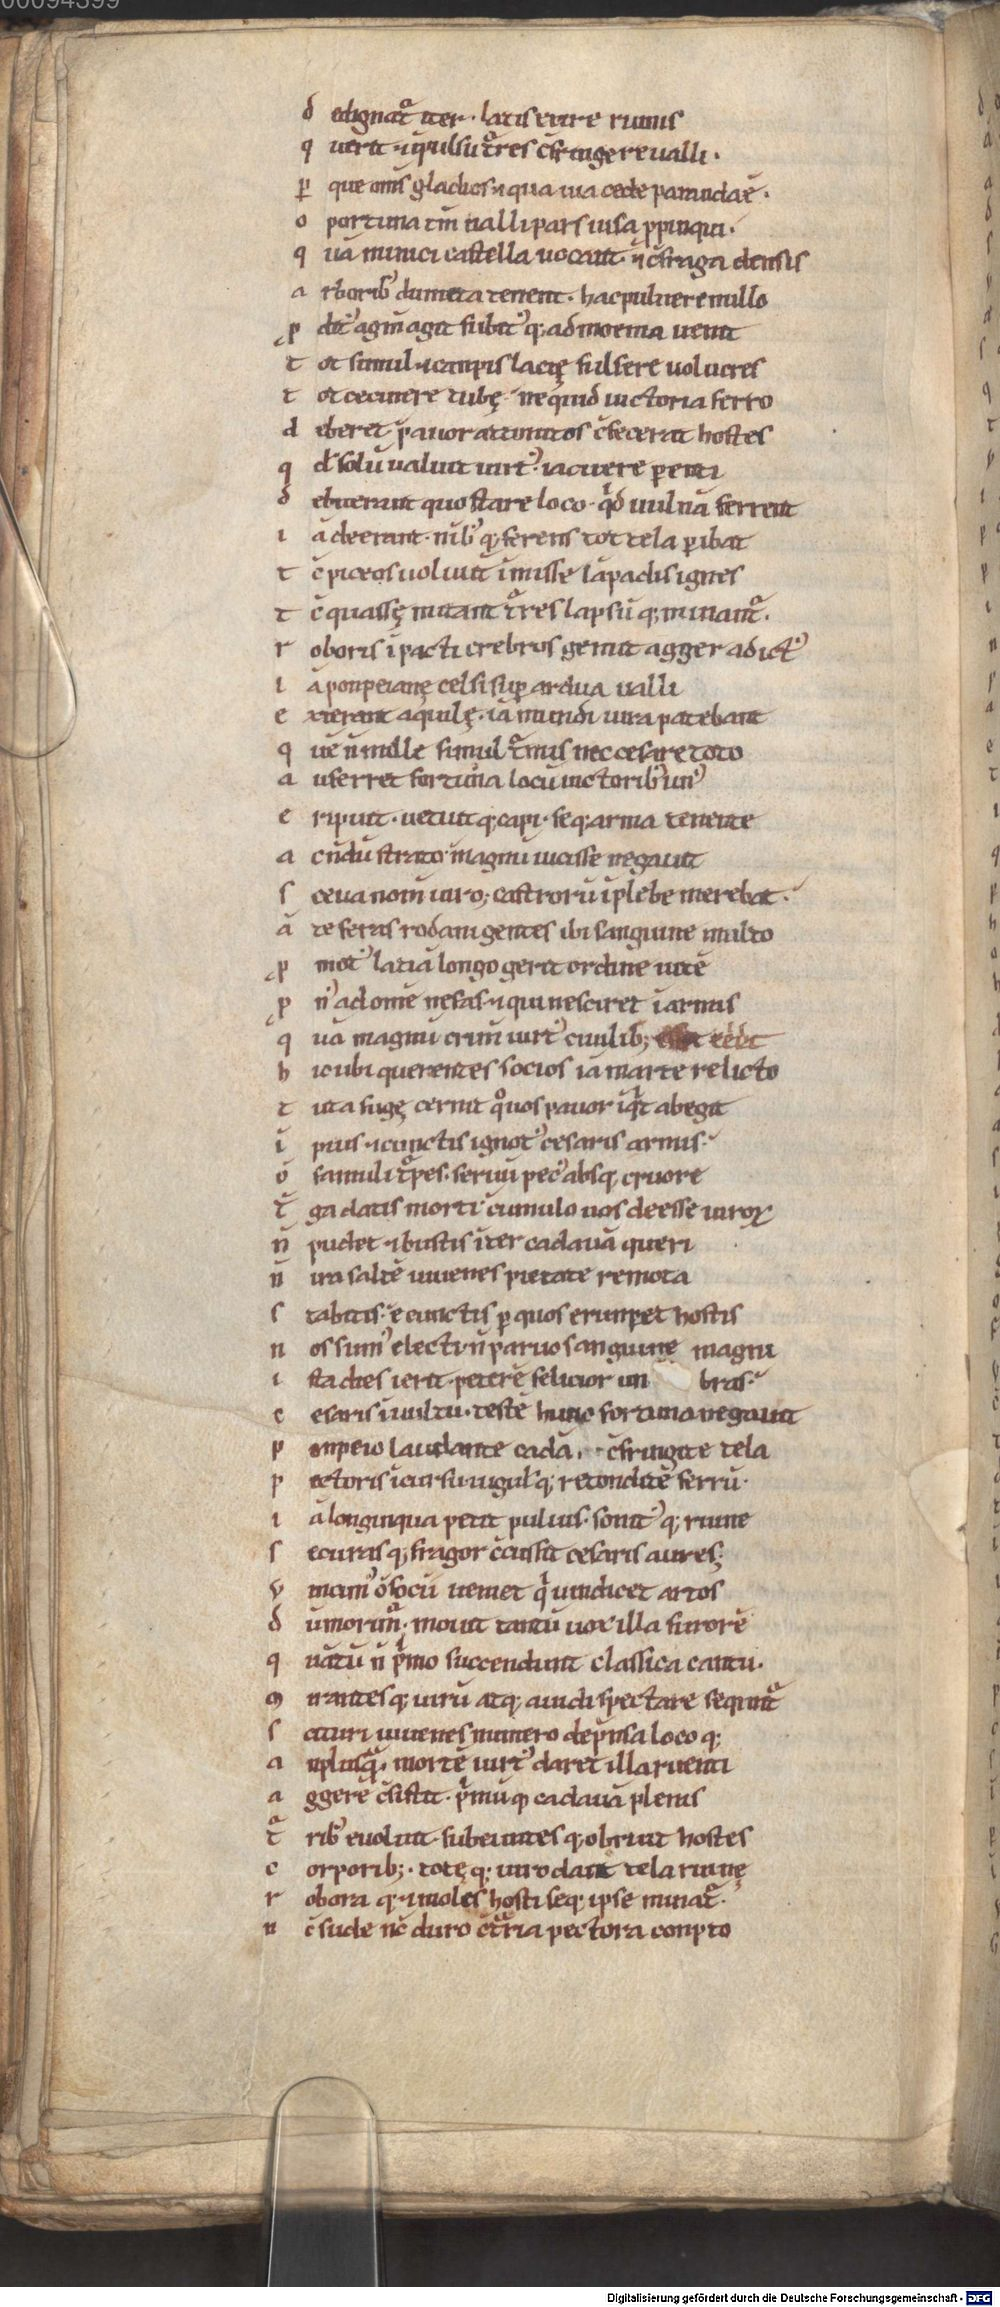 00094399
d edignat᷑ iter · latis exire ruinis
q uerit · ⁊ ĩpulsu t᷑res c̄fringere ualli ·
ꝑ que om̄is gladios · ⁊ qua uia cede paranda ē ·
o portuna tm̄ ualli pars uisa ꝓpinqui ·
q uā minuci castella uocant · ⁊ c̄fraga densis
a rborib᾽ dumeta tenent · hac puluere nullo
ꝓ dit᾽ agm̄ agit subit᾽ q; ad moenia uenit
t ot simul · ⁊ campis lacię fulsere uolucres
t ot cecinere tubę · ne quid uictoria ferro
d eberet · pauor attonitos c̄fecerat hostes
q d̄ solū ualuit uirt᾽ · iacuere ꝑempti
d ebuerant quo stare loco · qͥd uulnā ferrent
i ā deerant · nīb᾽ q; ferens tot tela ꝑibat
t c̄ piceos uoluit īmissē lāpadis ignes
t c̄ quassę nutant t᷑res lapsū q; minant᷑ ·
r oboris īpacti crebros gemit agger ad ict᾽
i ā ponpeianę celsi suꝑ ardua ualli
e xierant aquilę · iā mundi iura patebant
q uē n̄ mille simul t᷑mis nec cesare toto
a uferret fortuna locū uictorib᾽ un᾽
e ripuit · uetuit q; capi · seq; arma tenente
a c n̄dū strato magnū uicisse negauit
s ceua nom̄ uiro; castrorū ī plebe merebat ·
ā te feras rodani gentes ibi sanguine multo
ꝓ mot᾽ latiā longo gerit ordine uitē
ꝓ n᾽ ad om̄e nefas · ⁊ qui nesciret ī armis
q uā magnū crim̄ uirt᾽ ciuilib; eēt
h ic ubi querentes socios iā marte relicto
t uta fugę cernit qͦ uos pauor īqͥt abegit
ī pius · ⁊ cunctis ignot᾽ cesaris armis ·
ō famuli t᷑pes · seruū pec᾽ absq; cruore
t̄ ga datis morti cumulo uos deesse uiroꝝ
n̄ pudet · ⁊ bustis īter cadauā queri
n̄ ira saltē iuuenes pietate remota
s tabitis · e cunctis ꝑ quos erumpet hostis
n os sum᾽ electi · n̄ paruo sanguine magni
i sta dies ierit · peterē felicior un bras ·
c esaris ī uultu · testē hunc fortuna negauit
p ompeio laudante cadā · c̄fringite tela
p ectoris īcursu · iugul᾽q; retondite ferrū ·
i ā longinqua petit puluis · sonit᾽ q; ruine
s ecuras q; fragor c̄cussit cesaris aures;
v incim᾽ o socii ueniet qͥ uindicet artos
d ū morim᷑ · mouit tantū uox illa furorē
q uātū n̄ pͥmo succendunt classica cantu ·
m irantes q; uirū atq; auidi spectare sequunt᷑
s cituri iuuenes numero dep̄nsa loco q;
a n plusqͣ · mortē uirt᾽ daret illa ruenti
a ggere c̄sistit · pͥmūq; cadauā plenis
t᷑ rib᾽ euoluit · subeuntes q; obruit hostes
c orporib; · totę q; uiro dant tela ruinę
r obora q; · ⁊ moles hosti seq; ipse minat᷑ ·
n c̄ sude nc̄ duro c̄t᷑ria pectora conpto
Digitalisierung gefördert durch die Deutsche Forschungsgemeinschaft - DFG